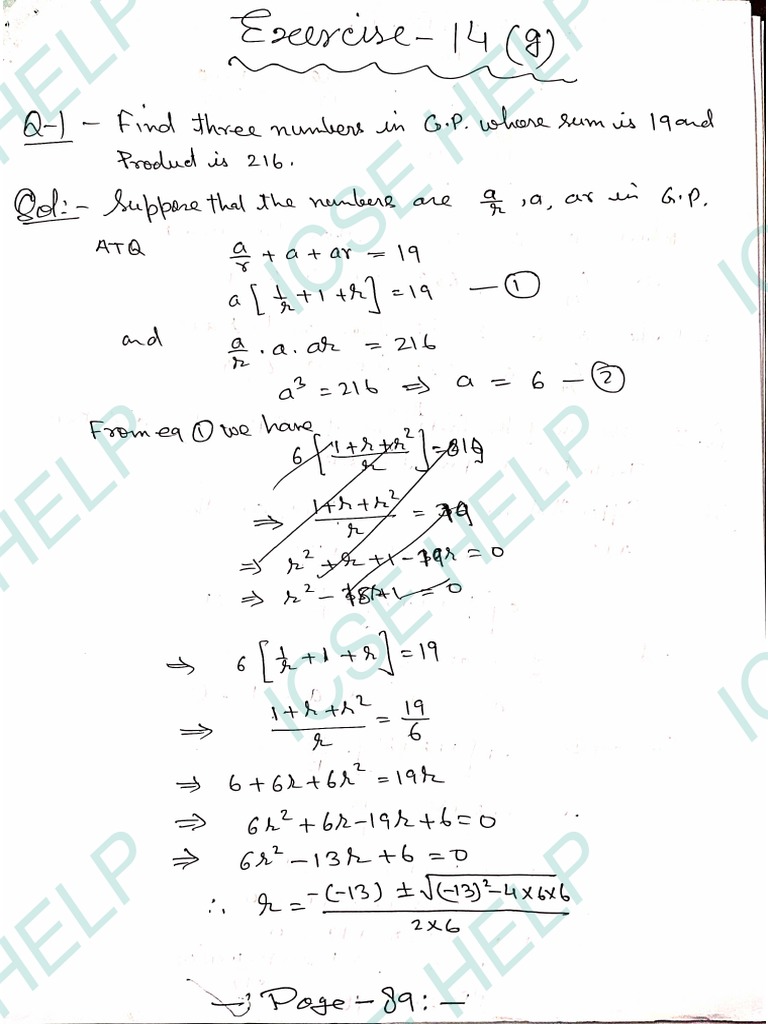 Exercise - 14 (g)
Q-1 - Find three numbers in G.P. whose sum is 19 and
Product is 216.
Sol:- Suppose that the numbers are a/r, a, ar in G.P.
ATQ a/r + a + ar = 19
a [1/r + 1 + r] = 19 — ①
and a/r . a . ar = 216
a³ = 216 ⇒ a = 6 — ②
From eq ① we have
6 [(1+r+r²)/r] = 19
⇒ (1+r+r²)/r =
⇒ r² + r + 1 - 19r = 0
⇒ r² - 18r + 1 = 0
⇒ 6 [1/r + 1 + r] = 19
⇒ (1+r+r²)/r = 19/6
⇒ 6 + 6r + 6r² = 19r
⇒ 6r² + 6r - 19r + 6 = 0
⇒ 6r² - 13r + 6 = 0
∴ r = (-(-13) ± √((-13)² - 4×6×6))/(2×6)
Page - 89: -
ICSE HELP